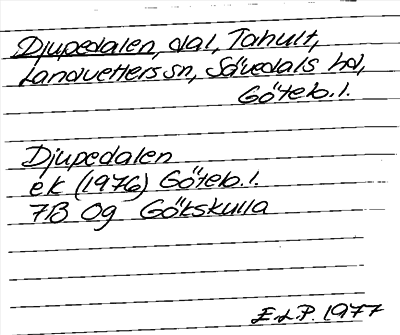 Djupedalen, dal, Tahult,
Landvetters sn, Sävedals hd,
Göteb. l.
Djupedalen
ek (1976) Göteb. l.
7B 0g Gökskulla
E.d.P. 1977